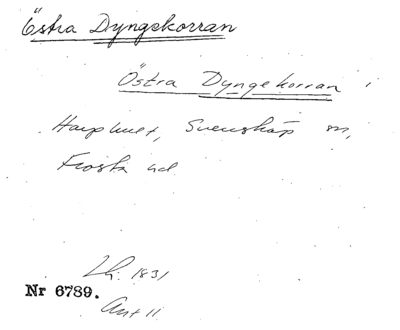 Östra Dyngekorran
Östra Dyngekorran i
Harplinet, Svensköp sn,
Frosta hd
Lh. 1831
Nr 6789.
Ant 11